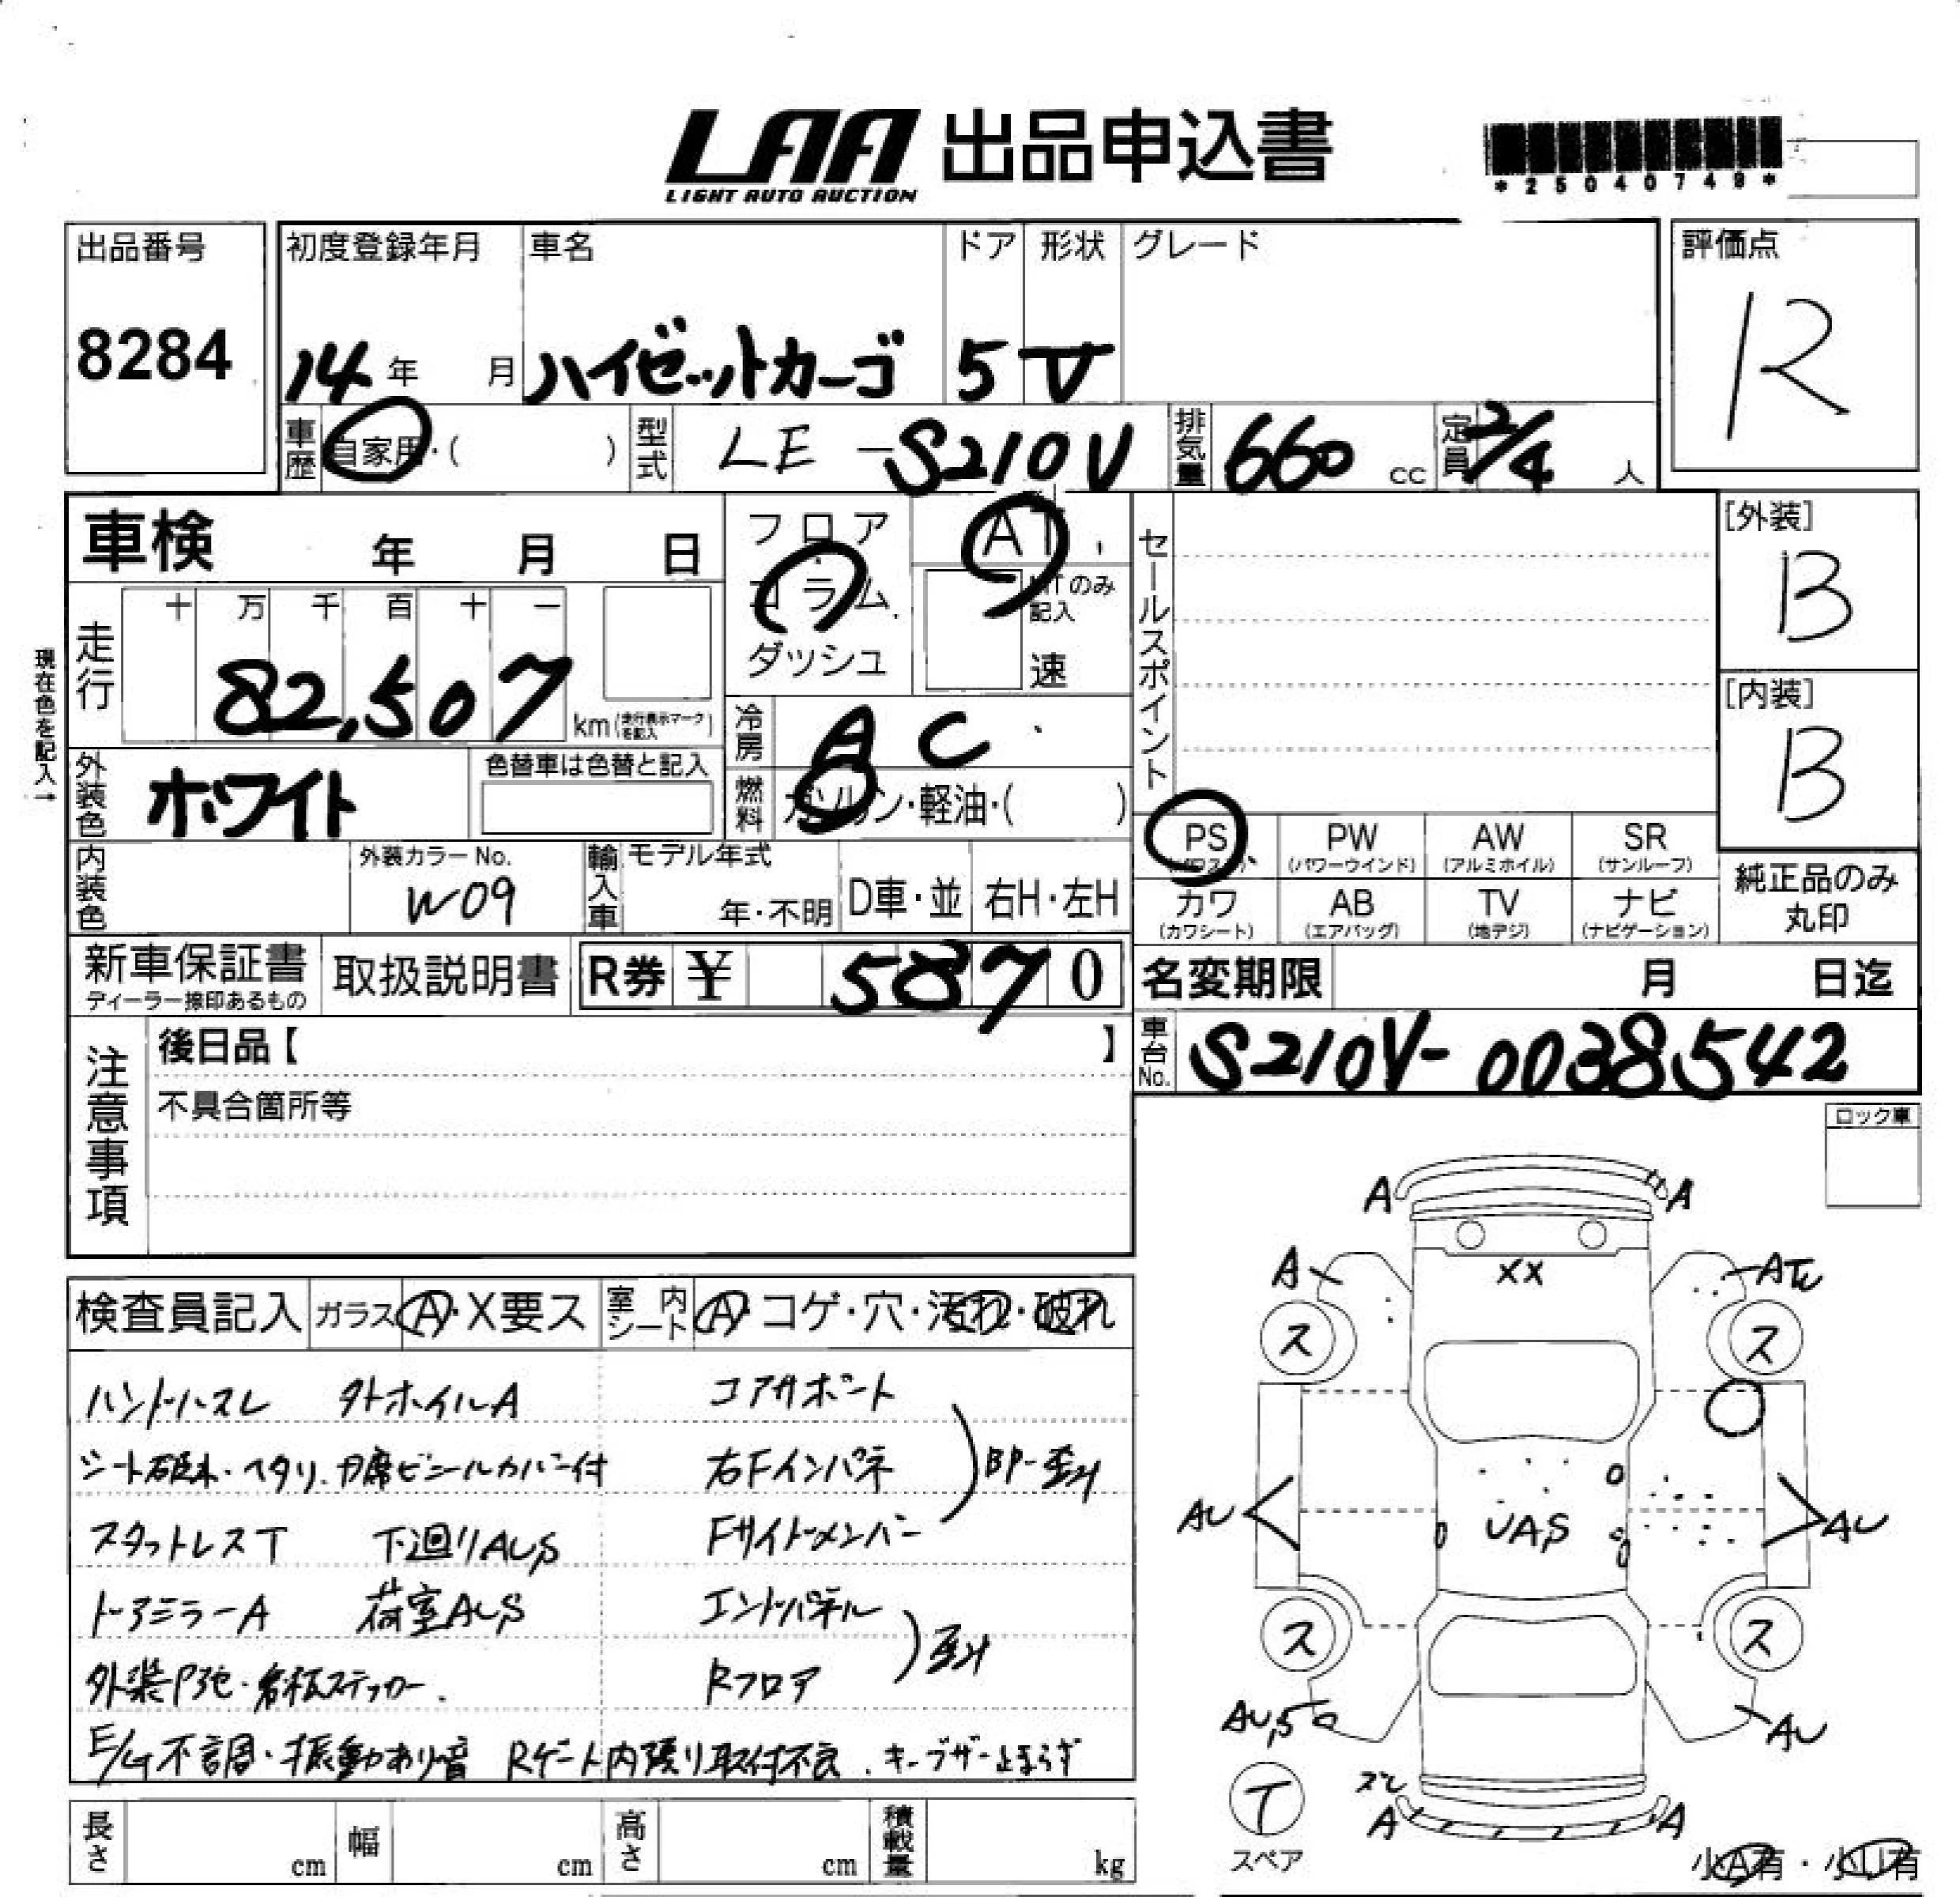 LAA 出品申込書
LIGHT AUTO AUCTION
*25040749*
出品番号 初度登録年月 車名 ドア 形状 グレード 評価点
8284 14年 月 ハイゼットカーゴ 5 V R
車歴 自家用・( ) 型式 LE-S210V 排気量 660 cc 定員 2/4 人
車検 年 月 日
フロア
コラム
ダッシュ
AT
MTのみ記入
速
セールスポイント
[外装]
B
[内装]
B
現在色を記入→
走行 十 万 千 百 十 一
82,507 km (走行表示マークを記入)
冷房 AC
外装色 ホワイト 色替車は色替と記入
燃料 ガソリン・軽油・( )
PS PW (パワーウインド) AW (アルミホイル) SR (サンルーフ)
カワ (カワシート) AB (エアバッグ) TV (地デジ) ナビ (ナビゲーション)
純正品のみ
丸印
内装色 外装カラーNo. W09 輸入車 モデル年式 年・不明 D車・並 右H・左H
新車保証書 取扱説明書 R券 ¥ 5870
ディーラー捺印あるもの
名変期限 月 日迄
車台No. S210V-0038542
注意事項
後日品【 】
不具合箇所等
ロック車
検査員記入 ガラス A・X要ス 室内シート A・コゲ・穴・汚れ・破れ
ハンドルスレ 外ホイルA コアサポート
シート破れ・ヘタリ. カバー付 右Fインパネ BP-歪み
スタットレスT 下廻りAUS Fサイドメンバー
ドアミラーA 荷室AUS エンドパネル
外装P跡・看板ステッカー. Rフロア 歪み
E/G不調・振動あり音 Rゲート内張り取付不良. キーブザー止まらず
A A
A XX
ス ス
AU UAS AU
ス ス
AU
T
スペア
A A
小A有・小U有
長さ cm 幅 cm 高さ cm 積載量 kg